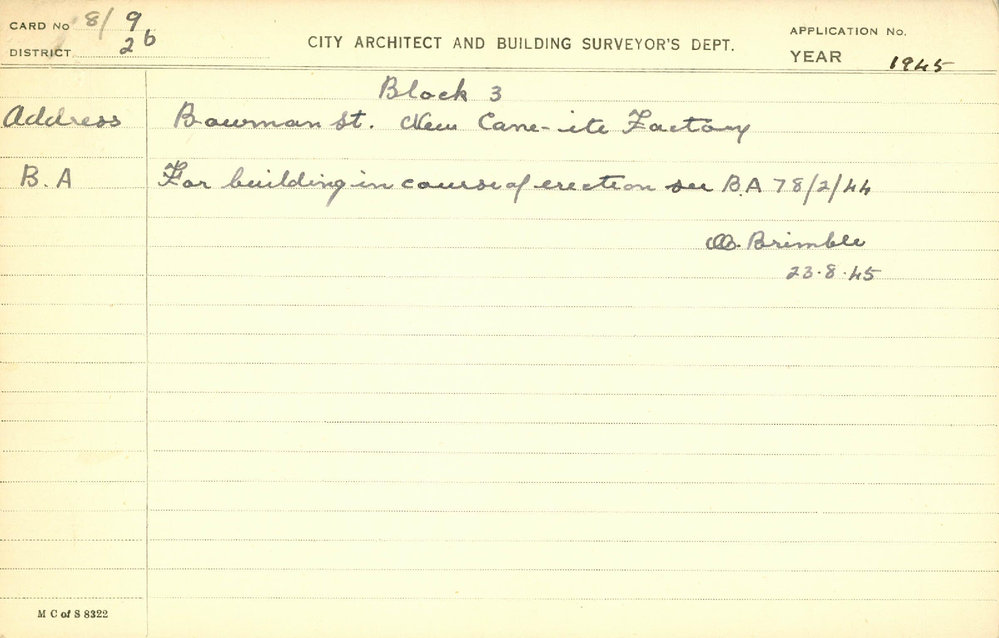 CARD No 8/9
DISTRICT 26
CITY ARCHITECT AND BUILDING SURVEYOR'S DEPT.
APPLICATION No.
YEAR 1945
Block 3
Address Bowman St. New Cane-ite Factory
B.A For building in course of erection see B.A 78/2/44
Brimble
23.8.45
M C of S 8322